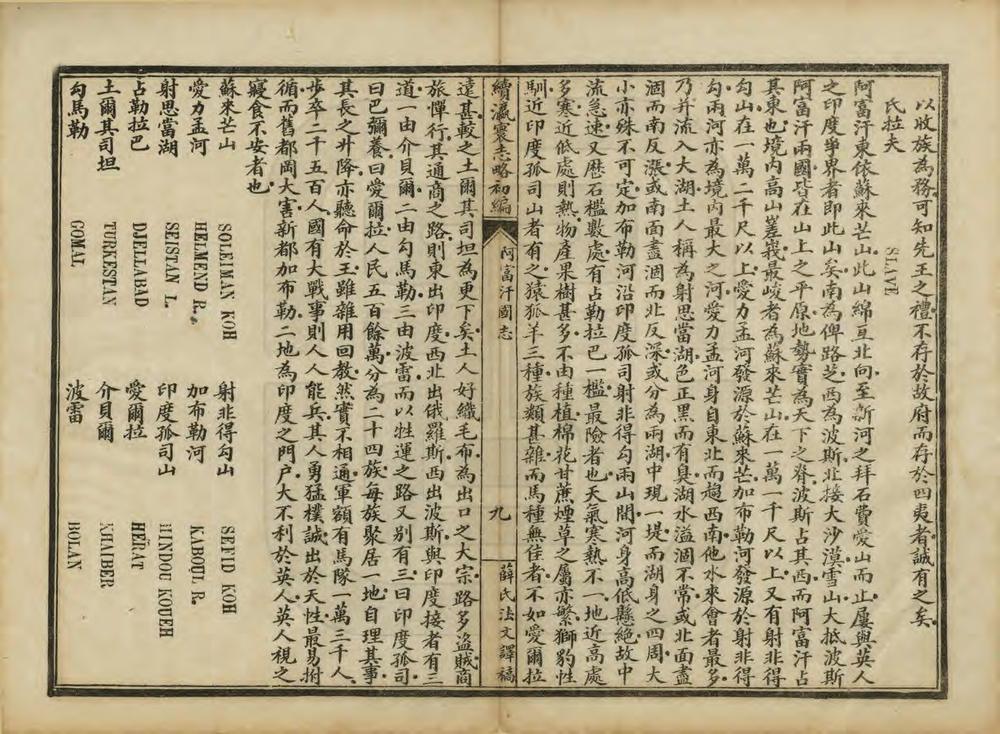 以收族為務可知先王之禮不存於故府而存於四夷者誠有之矣
氏拉夫 SLAVE
阿富汗東依蘇來芒山此山綿亙北向至新河之拜石費愛山而止屢與英人
之印度爭界者即此山矣南為俾路芝西為波斯北接大沙漠雪山大抵波斯
阿富汗兩國皆在山上之平原地勢實為天下之脊波斯占其西而阿富汗占
其東也境內高山嵳峩最峻者為蘇來芒山在一萬一千尺以上又有射非得
勾山在一萬二千尺以上愛力孟河發源於蘇來芒加布勒河發源於射非得
勾兩河亦為境內最大之河愛力孟河身自東北而趨西南他水來會者最多
乃并流入大湖土人稱為射思當湖色正黑而有臭湖水溢涸不常或北面盡
涸而南反漲或南面盡涸而北反深或分為兩湖中現一堤而湖身之四周大
小亦殊不可定加布勒河沿印度孤司射非得勾兩山間河身高低懸絕故中
流急速又歷石檻數處有占勒拉巴一檻最險者也天氣寒熱不一地近高處
多寒近低處則熱物產果樹甚多不由種植棉花甘蔗煙草之屬亦繁獅豹性
馴近印度孤司山者有之猿狐羊三種族類甚雜而馬種無佳者不如愛爾拉
續瀛寰志略初編 阿富汗國志 九 薛氏法文譯稿
遠甚較之土爾其司坦為更下矣土人好織毛布為出口之大宗路多盜賊商
旅憚行其通商之路則東出印度西北出俄羅斯西出波斯與印度接者有三
道一由介貝爾二由勾馬勒三由波雷而以牲運之路又別有三曰印度孤司
曰巴彌養曰愛爾拉人民五百餘萬分為二十四族每族聚居一地自理其事
其長之升降亦聽命於王雖雜用回教然實不相通軍額有馬隊一萬三千人
步卒二千五百人國有大戰事則人人能兵其人勇猛樸誠出於天性最易拊
循而舊都岡大害新都加布勒二地為印度之門戶大不利於英人英人視之
寢食不安者也
蘇來芒山 SOLEIMAN KOH 射非得勾山 SEFID KOH
愛力孟河 HELMEND R. 加布勒河 KABOUL R.
射思當湖 SEISTAN L. 印度孤司山 HINDOU KOUEH
占勒拉巴 DJELLABAD 愛爾拉 HÉRAT
土爾其司坦 TURKESTAN 介貝爾 KHAIBER
勾馬勒 GOMAL 波雷 BOLAN